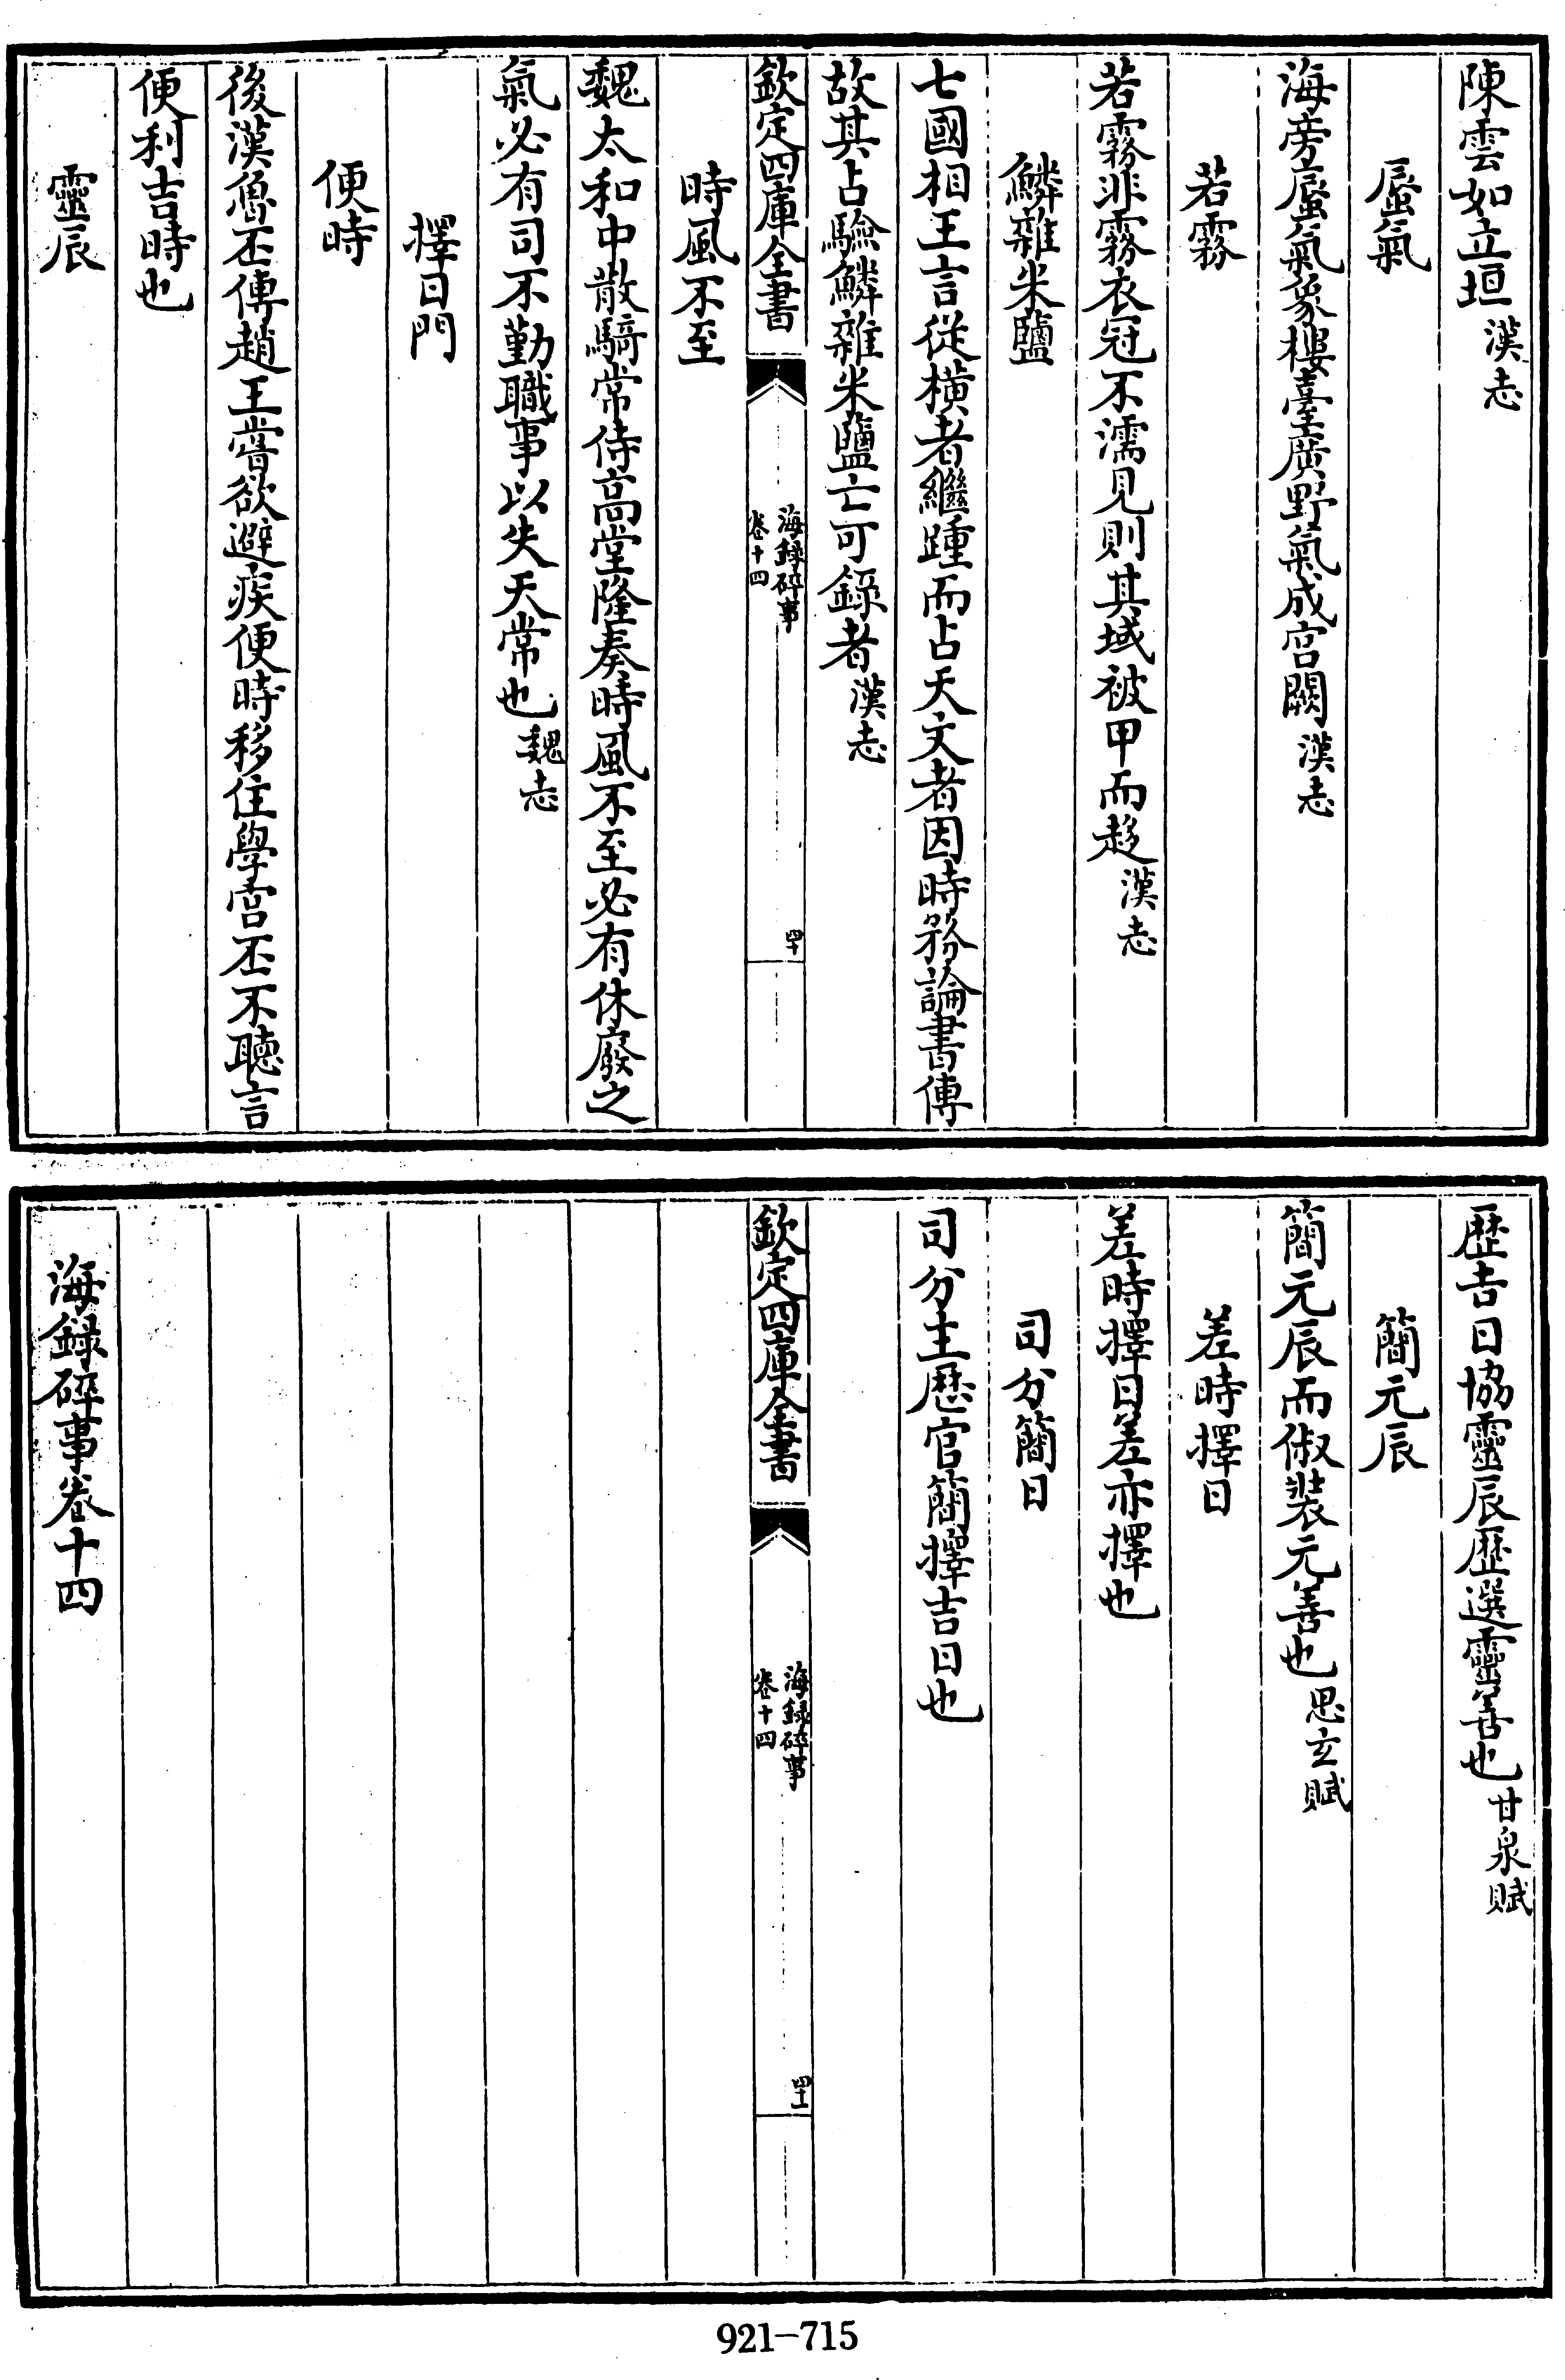 陳雲如立垣漢志
蜃氣
海旁蜃氣象樓臺廣野氣成宫闕漢志
若霧
若霧非霧衣冠不濡見則其域被甲而趍漢志
鱗雜米鹽
七國相王言從横者繼踵而占天文者因時務論書傳
故其占驗鱗雜米鹽亡可録者漢志
欽定四庫全書
海録碎事
卷十四
四十
時風不至
魏太和中散騎常侍高堂隆奏時風不至必有休廢之
氣必有司不勤職事以失天常也魏志
擇日門
便時
後漢魯丕傳趙王嘗欲避疾便時移住學宫丕不聽言
便利吉時也
靈辰
歴吉日協靈辰歴選靈善也甘泉賦
簡元辰
簡元辰而俶裝元善也思玄賦
差時擇日
差時擇日差亦擇也
司分簡日
司分主厯官簡擇吉日也
欽定四庫全書
海録碎事
卷十四
四十一
海録碎事卷十四
921-715